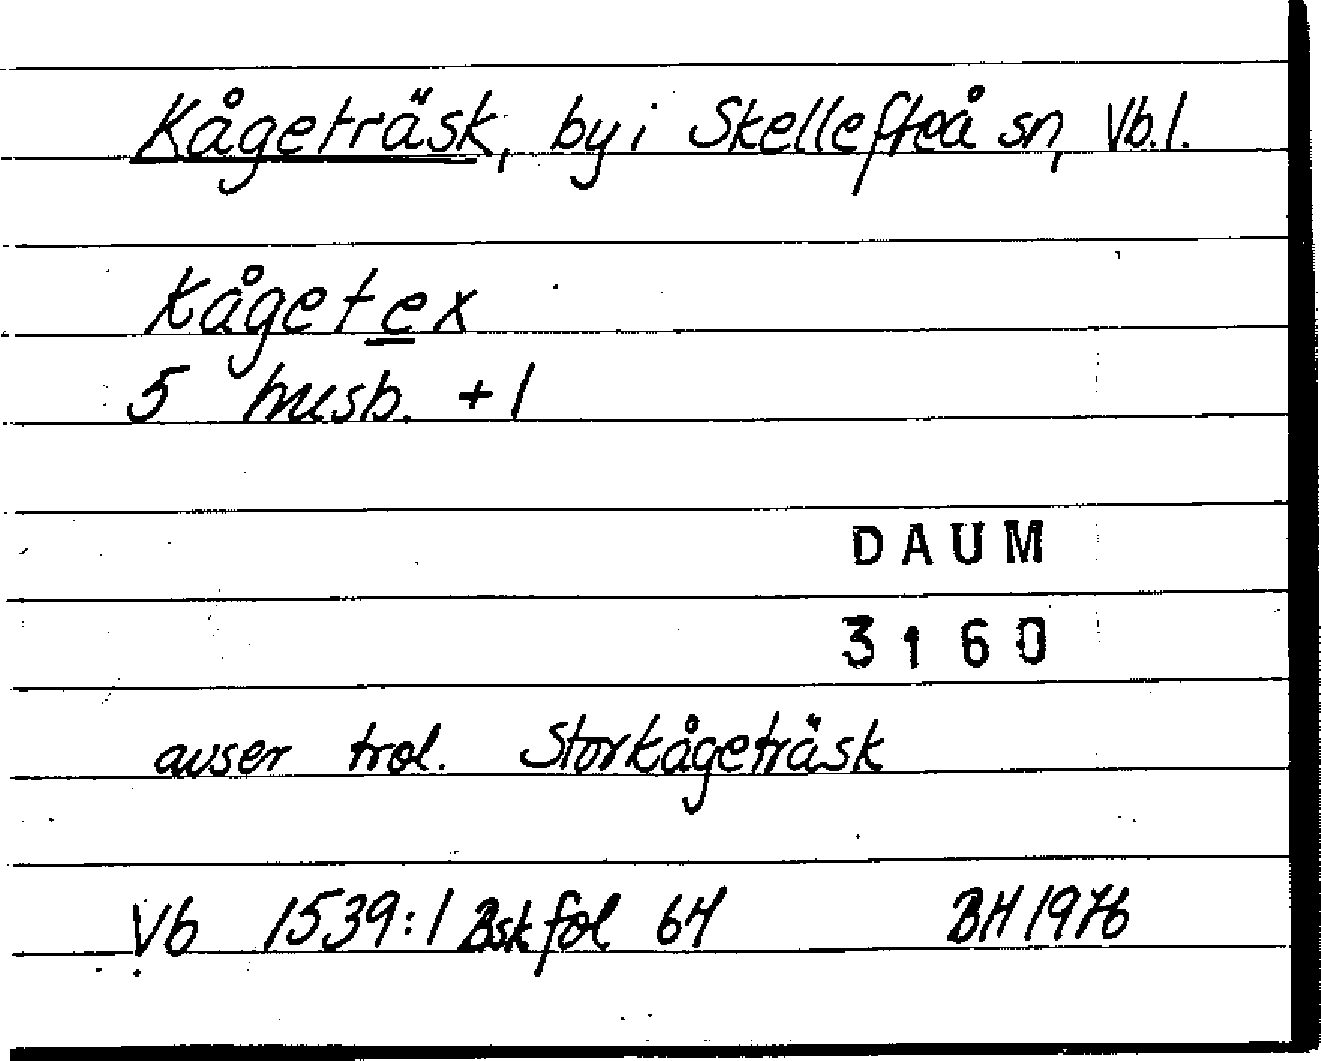 Kågeträsk, by i Skellefteå sn, Vb.l.
Kågetex
5 husb. + 1
DAUM
3160
avser trol. Storkågeträsk
Vb 1539:1 Bsk fol 64 BH 1976